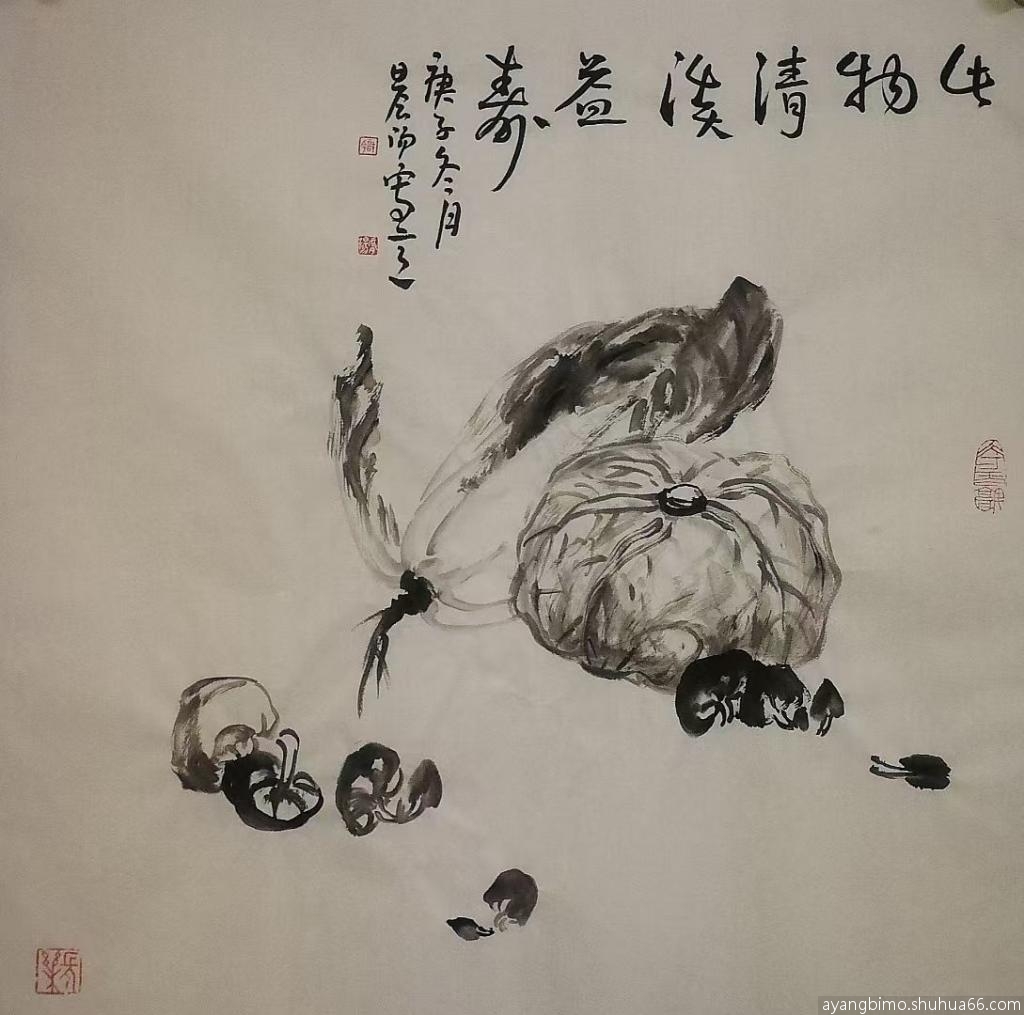 此物清淡益寿
庚子冬月
晨阳写
ayangbimo.shuhua66.com